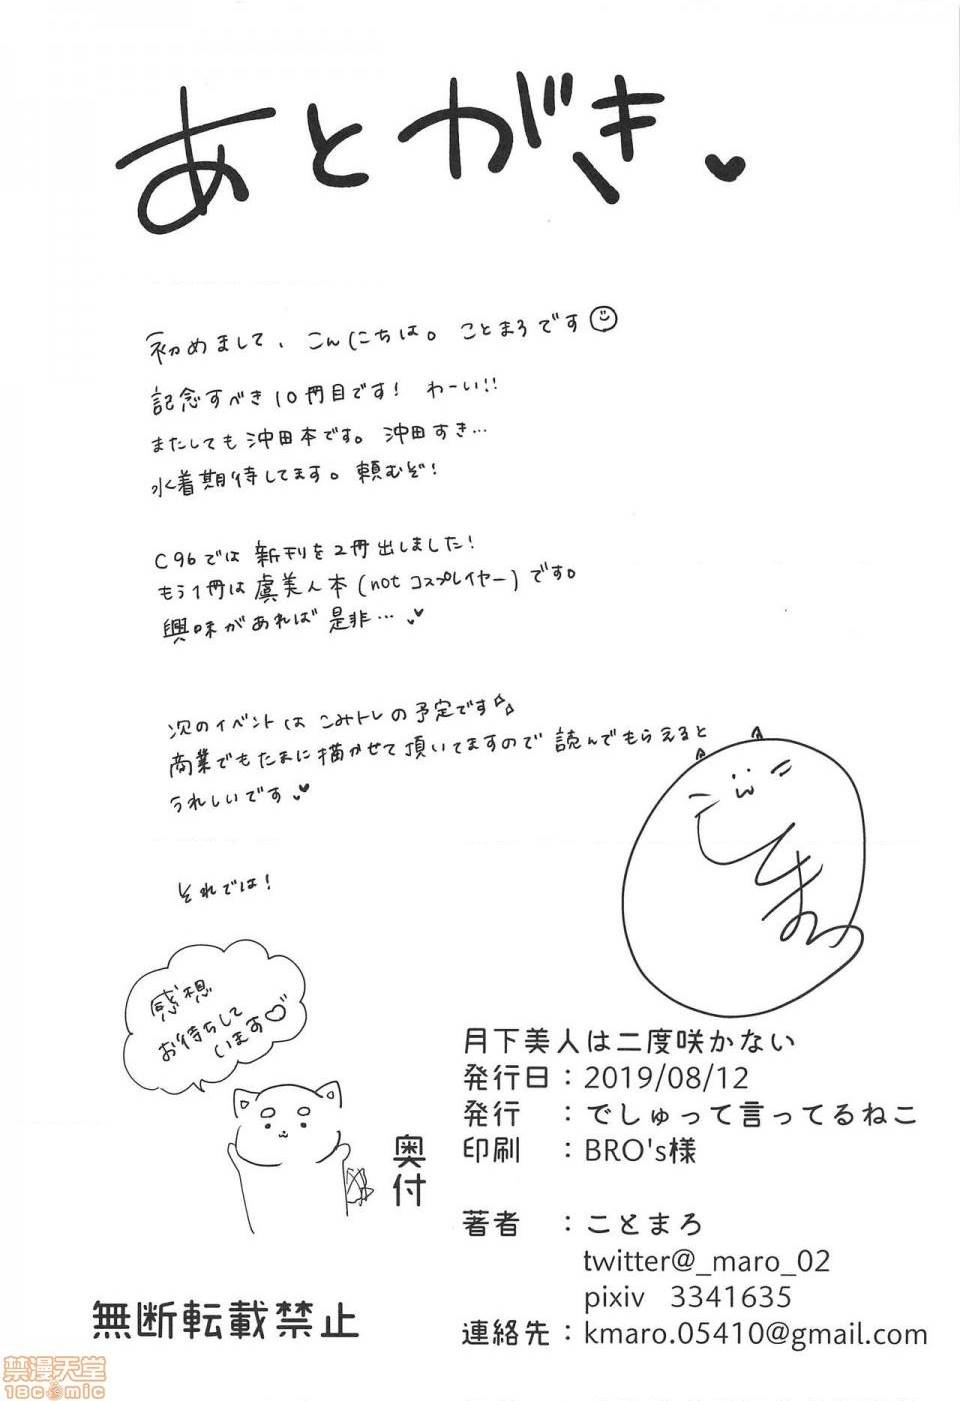 あとがき♥
初めまして、こんにちは。ことまろです
記念すべき10冊目です! わーい!!
またしても沖田本です。沖田すき…
水着期待してます。頼むぞ!
C96では新刊を2冊出しました!
もう1冊は虞美人本(notコスプレイヤー)です。
興味があれば是非…♥
次のイベントはこみトレの予定です☆
商業でもたまに描かせて頂いてますので読んでもらえると
うれしいです♥
それでは!
感想
お待ちして
います♡
月下美人は二度咲かない
発行日:2019/08/12
発行 :でしゅって言ってるねこ
印刷 :BRO's様
奥付
著者 :ことまろ
twitter@_maro_02
pixiv 3341635
連絡先:kmaro.05410@gmail.com
無断転載禁止
禁漫天堂
18comic